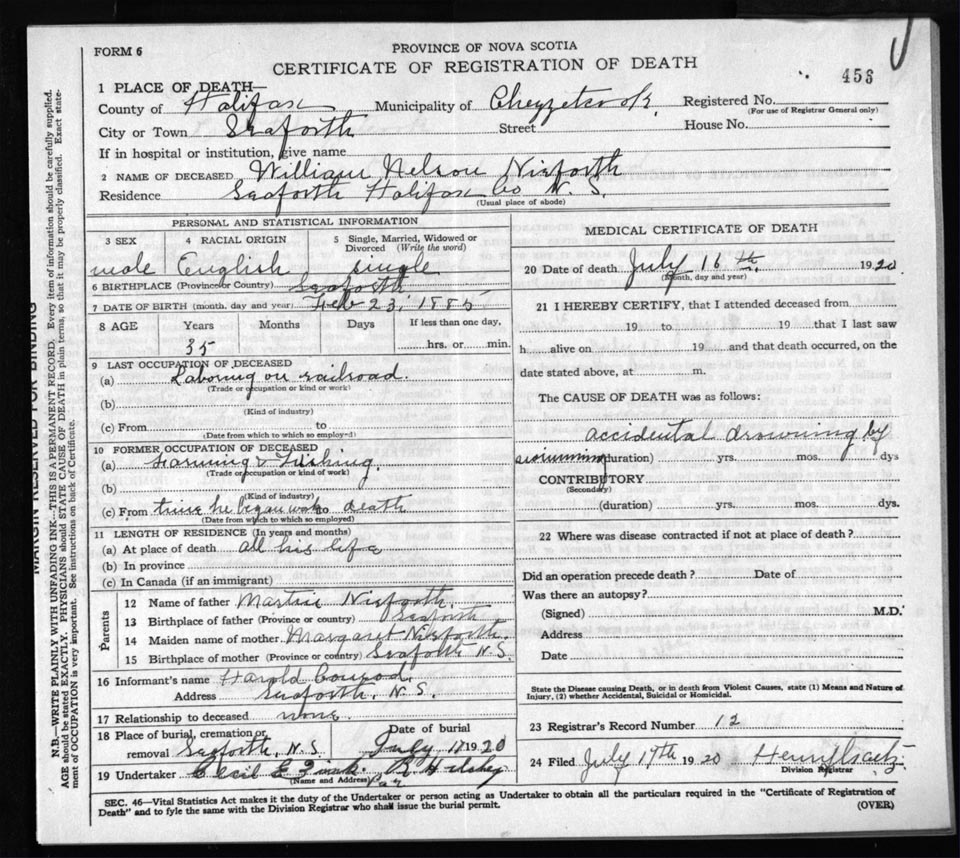 FORM 6
PROVINCE OF NOVA SCOTIA
CERTIFICATE OF REGISTRATION OF DEATH
456
1 PLACE OF DEATH—
County of Halifax Municipality of Chezzetcook Registered No.
(For use of Registrar General only)
City or Town Seaforth Street House No.
If in hospital or institution, give name
2 NAME OF DECEASED William Nelson Nieforth
Residence Seaforth Halifax Co N. S.
(Usual place of abode)
PERSONAL AND STATISTICAL INFORMATION
3 SEX 4 RACIAL ORIGIN 5 Single, Married, Widowed or Divorced (Write the word)
male English single
6 BIRTHPLACE (Province or Country) Seaforth
7 DATE OF BIRTH (month, day and year) Feb 23, 1885
8 AGE Years Months Days If less than one day,
35 hrs. or min.
9 LAST OCCUPATION OF DECEASED
(a) Laboring on railroad
(Trade or occupation or kind or work)
(b)
(Kind of industry)
(c) From to
(Date from which to which so employed)
10 FORMER OCCUPATION OF DECEASED
(a) Farming & Fishing.
(Trade or occupation or kind of work)
(b)
(Kind of industry)
(c) From time he began work to death
(Date from which to which so employed)
11 LENGTH OF RESIDENCE (In years and months)
(a) At place of death all his life
(b) In province
(c) In Canada (if an immigrant)
Parents
12 Name of father Martin Nieforth.
13 Birthplace of father (Province or country) Seaforth
14 Maiden name of mother Margaret Nieforth.
15 Birthplace of mother (Province or country) Seaforth N.S.
16 Informant's name Harold Conrod
Address Seaforth, N. S.
17 Relationship to deceased none.
18 Place of burial, cremation or removal Seaforth, N.S
Date of burial
July 1920
19 Undertaker Cecil E
(Name and Address)
MEDICAL CERTIFICATE OF DEATH
20 Date of death July 16th. 1920
(Month, day and year)
21 I HEREBY CERTIFY, that I attended deceased from
19 to 19 that I last saw
h alive on 19 and that death occurred, on the
date stated above, at m.
The CAUSE OF DEATH was as follows:
accidental drowning by
swimming (duration) yrs. mos. dys
CONTRIBUTORY
(Secondary)
(duration) yrs. mos. dys.
22 Where was disease contracted if not at place of death?
Did an operation precede death? Date of
Was there an autopsy?
(Signed) M.D.
Address
Date
State the Disease causing Death, or in death from Violent Causes, state (1) Means and Nature of
Injury, (2) whether Accidental, Suicidal or Homicidal.
23 Registrar's Record Number 12
24 Filed July 17th 1920
Division Registrar
SEC. 46—Vital Statistics Act makes it the duty of the Undertaker or person acting as Undertaker to obtain all the particulars required in the "Certificate of Registration of
Death" and to fyle the same with the Division Registrar who shall issue the burial permit.
(OVER)
MARGIN RESERVED FOR BINDING
N.B.—WRITE PLAINLY WITH UNFADING INK—THIS IS A PERMANENT RECORD. Every item of information should be carefully supplied.
AGE should be stated EXACTLY. PHYSICIANS should STATE CAUSE OF DEATH in plain terms, so that it may be properly classified. Exact state-
ment of OCCUPATION is very important. See instructions on back of Certificate.